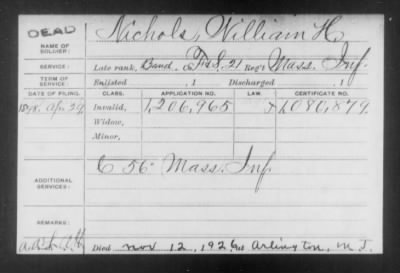 DEAD
Nichols, William H.
NAME OF SOLDIER:
SERVICE: Late rank, Band, Co. F&S, 21 Reg't Mass. Inf.
TERM OF SERVICE: Enlisted , 1 Discharged , 1
DATE OF FILING. CLASS. APPLICATION NO. LAW. CERTIFICATE NO.
1898. Apr. 29. Invalid, 1,206,965 1,080,879.
Widow,
Minor,
C 56" Mass. Inf
ADDITIONAL SERVICES:
REMARKS:
Died Nov 12, 1926 at Arlington, N J.